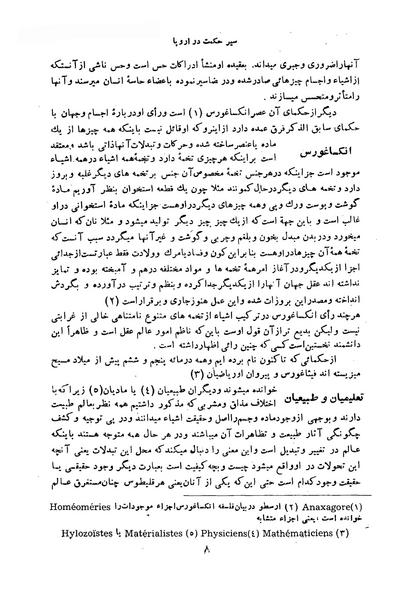 سیر حکمت در اروپا
آنها را ضروری و جبری میداند. بعقیده او منشأ ادراکات حس است و حس ناشی از آنستکه
از اشیاء و اجسام چیزهائی صادر شده و در ضامیر نموده باعضاء حاسهٔ انسان میرسند و آنها
را متأثر و متحسس میسازند.
دیگر از حکمای آن عصر انکساغورس (۱) است و رأی او دربارهٔ اجسام و جهان با
حکمای سابق الذکر فرق عمده دارد از اینرو که او قائل نیست باینکه همه چیزها از یک
انکساغورس
ماده یا عنصر ساخته شده و حرکات و تبدلات آنها ذاتی باشد و معتقد
است براینکه هر چیزی تخمهٔ دارد و تخمهٔ همه اشیاء در همه اشیاء
موجود است جز اینکه در هر جنس تخمهٔ مخصوص آن جنس بر تخمه های دیگر غلبه و بروز
دارد و تخمه های دیگر در حال کمونند مثلا چون یک قطعه استخوان بنظر آوریم مادهٔ
گوشت و پوست و رگ و پی و همه چیزهای دیگر در او هست جز اینکه مادهٔ استخوانی در او
غالب است و باین جهة است که از یک چیز چیز دیگر تولید میشود و مثلا نان که انسان
میخورد در بدن مبدل بخون و بلغم و چربی و گوشت و غیر آنها میگردد سبب آنست که
تخمهٔ همهٔ آن چیزها در او هست بنابراین کون و فساد یا مرگ و ولادت فقط عبارتست از جدائی
اجزا از یکدیگر و در آغاز امر همهٔ تخمه ها و مواد مختلفه درهم و آمیخته بوده و تمایز
نداشته اند عقل جهان آنها را از یکدیگر جدا کرده و بنظم و ترتیب در آورده و بگردش
انداخته و مصدر این بروزات شده و این عمل هنوز جاری و برقرار است (۲)
هر چند رأی انکساغورس در ترکیب اشیاء از تخمه های متنوع نامتناهی خالی از غرابتی
نیست ولیکن بدیع تر از آن قول اوست باین که ناظم امور عالم عقل است و ظاهراً این
دانشمند نخستین است کسی که چنین رائی اظهار داشته است.
از حکمائی که تاکنون نام برده ایم و همه در مائه پنجم و ششم پیش از میلاد مسیح
میزیسته اند فیثاغورس و پیروان او ریاضیان (۳)
تعلیمیان و طبیعیان
خوانده میشوند و دیگران طبیعیان (۴) یا مادیان (۵) زیرا که با
اختلاف مذاق و مشربی که مذکور داشتیم همه نظر بعالم طبیعت
دارند و بوجهی از وجوه ماده و جسم را اصل و حقیقت اشیاء میدانند و در پی توجیه و کشف
چگونگی آثار طبیعت و تظاهرات آن میباشند و در هر حال همه متوجه هستند باینکه
عالم در تغییر و تبدیل است و این معنی را دنبال میکنند که محل این تبدلات یعنی آنچه
این تحولات در او واقع میشود چیست و بچه کیفیت است بعبارت دیگر وجود حقیقی یا
حقیقت وجود کدام است حتی این که یکی از آنان یعنی هرقلیطوس چنان مستغرق عالم
(۱) Anaxagore (۲) ارسطو در بیان فلسفه انکساغورس اجزاء موجودات را Homéoméries
خوانده است، یعنی اجزاء متشابه
(۳) Mathématiciens (۴) Physiciens (۵) Matérialistes یا Hylozoïstes
۸